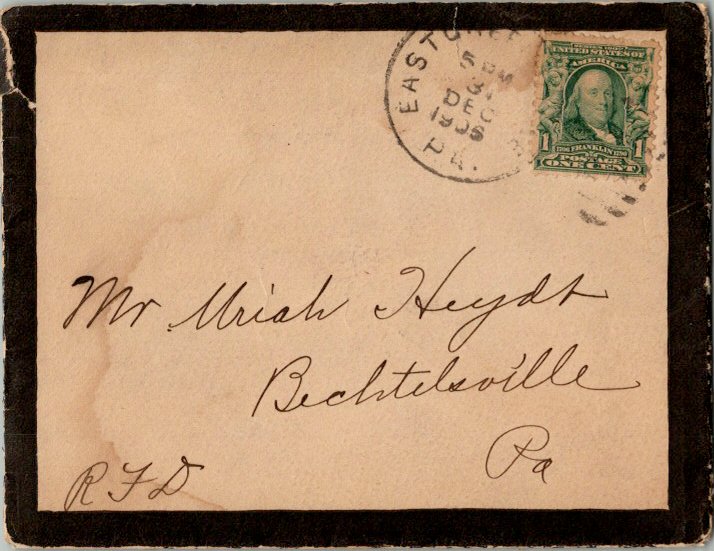 EAST GREE
5 PM
31
DEC
1906
PA.
SERIES 1902
UNITED STATES OF
AMERICA
1 1
1706 FRANKLIN 1790
POSTAGE
ONE CENT
Mr Uriah Heydt
Bechtelsville
Pa
R F D